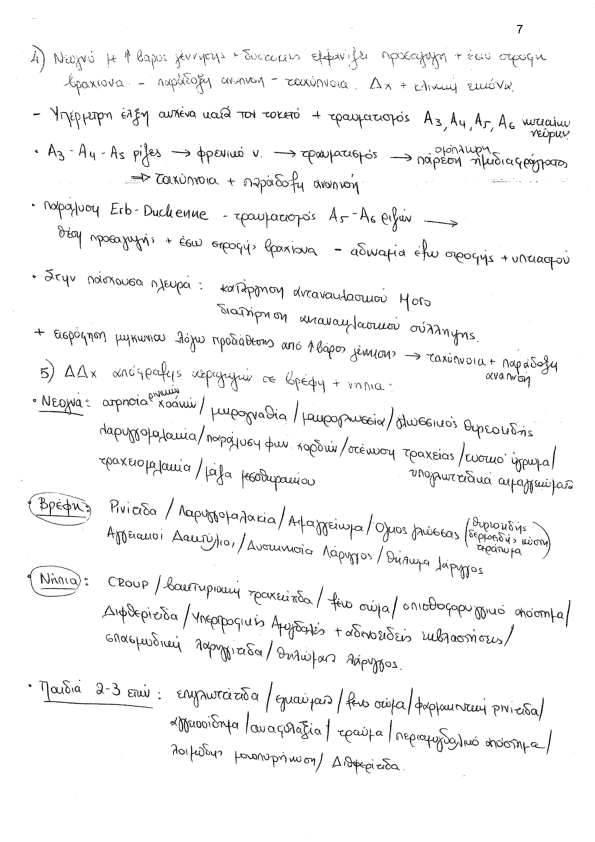 7
4) Νεογνό με ↑ βάρος γέννησης + δυστοκίας εμφανίζει προσαγωγή + έσω στροφή
βραχίονα - παράδοξη αναπνοή - ταχύπνοια. Δx + κλινική εικόνα.
- Υπέρμετρη έλξη αυχένα κατά τον τοκετό + τραυματισμός Α3, Α4, Α5, Α6 νωτιαίων νεύρων.
• Α3-Α4-Α5 ρίζες → φρενικό ν. → τραυματισμός → ομόπλευρη πάρεση ημιδιαφράγματος
⇒ ταχύπνοια + παράδοξη αναπνοή
• Παράλυση Erb-Duchenne - τραυματισμός Α5-Α6 ριζών →
θέση προσαγωγής + έσω στροφής βραχίονα - αδυναμία έξω στροφής + υπτιασμού
• Στην πάσχουσα πλευρά: κατάργηση αντανακλαστικού Moro
διατήρηση αντανακλαστικού σύλληψης.
+ εισρόφηση μηκωνίου λόγω προδιάθεσης από ↑ βάρος γέννησης → ταχύπνοια + παράδοξη αναπνοή
5) ΔΔx απόφραξης αεραγωγών σε βρέφη + νήπια:
• Νεογνά: ατρησία ρινικών χοανών / μικρογναθία / μακρογλωσσία / γλωσσικός θυρεοειδής
λαρυγγομαλακία / παράλυση φων. χορδών / στένωση τραχείας / κυστικό ύγρωμα /
τραχειομαλακία / μάζα μεσοθωρακίου υπογλωττιδικά αιμαγγειώματα
• Βρέφη: Ρινίτιδα / Λαρυγγομαλακία / Αιμαγγείωμα / Όγκος γλώσσας (θυρεοειδής δερμοειδής κύστη τεράτωμα)
Αγγειακοί Δακτύλιοι / Δυσκινησία Λάρυγγος / Θήλωμα λάρυγγος
• Νήπια: CROUP / βακτηριακή τραχειίτιδα / ξένο σώμα / οπισθοφαρυγγικό απόστημα /
Διφθερίτιδα / Υπερτροφικές Αμυγδαλές + αδενοειδείς εκβλαστήσεις /
σπασμωδική λαρυγγίτιδα / θηλώματα λάρυγγος.
• Παιδιά 2-3 ετών: επιγλωττίτιδα / εγκαύματα / ξένο σώμα / φαρμακευτική ρινίτιδα /
αγγειοοίδημα / αναφυλαξία / τραύμα / περιαμυγδαλικό απόστημα /
λοιμώδης μονοπυρήνωση / Διφθερίτιδα.